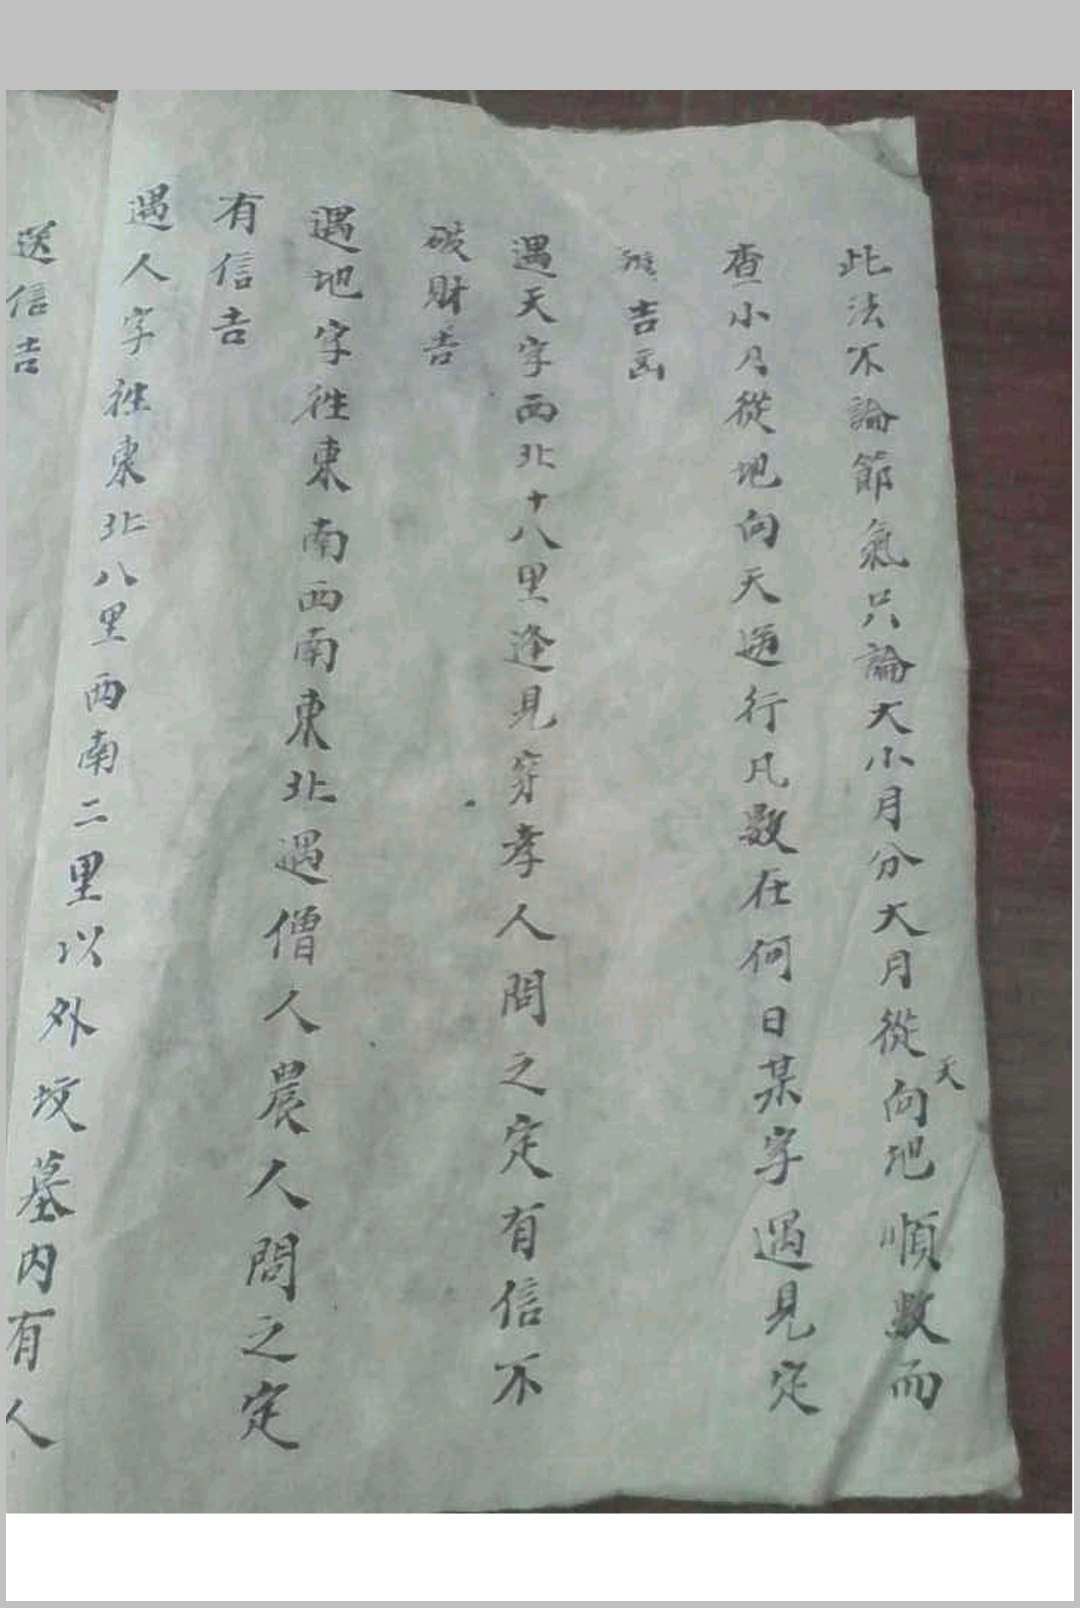 此法不論節氣只論大小月分大月從天向地順數而
查小乃從地向天逆行凡數在何日某字遇見定
吉凶
遇天字西北十八里逢見穿孝人問之定有信不
破財吉
遇地字往東南西南東北遇僧人農人問之定
有信吉
遇人字往東北八里西南二里以外坟墓内有人
送信吉